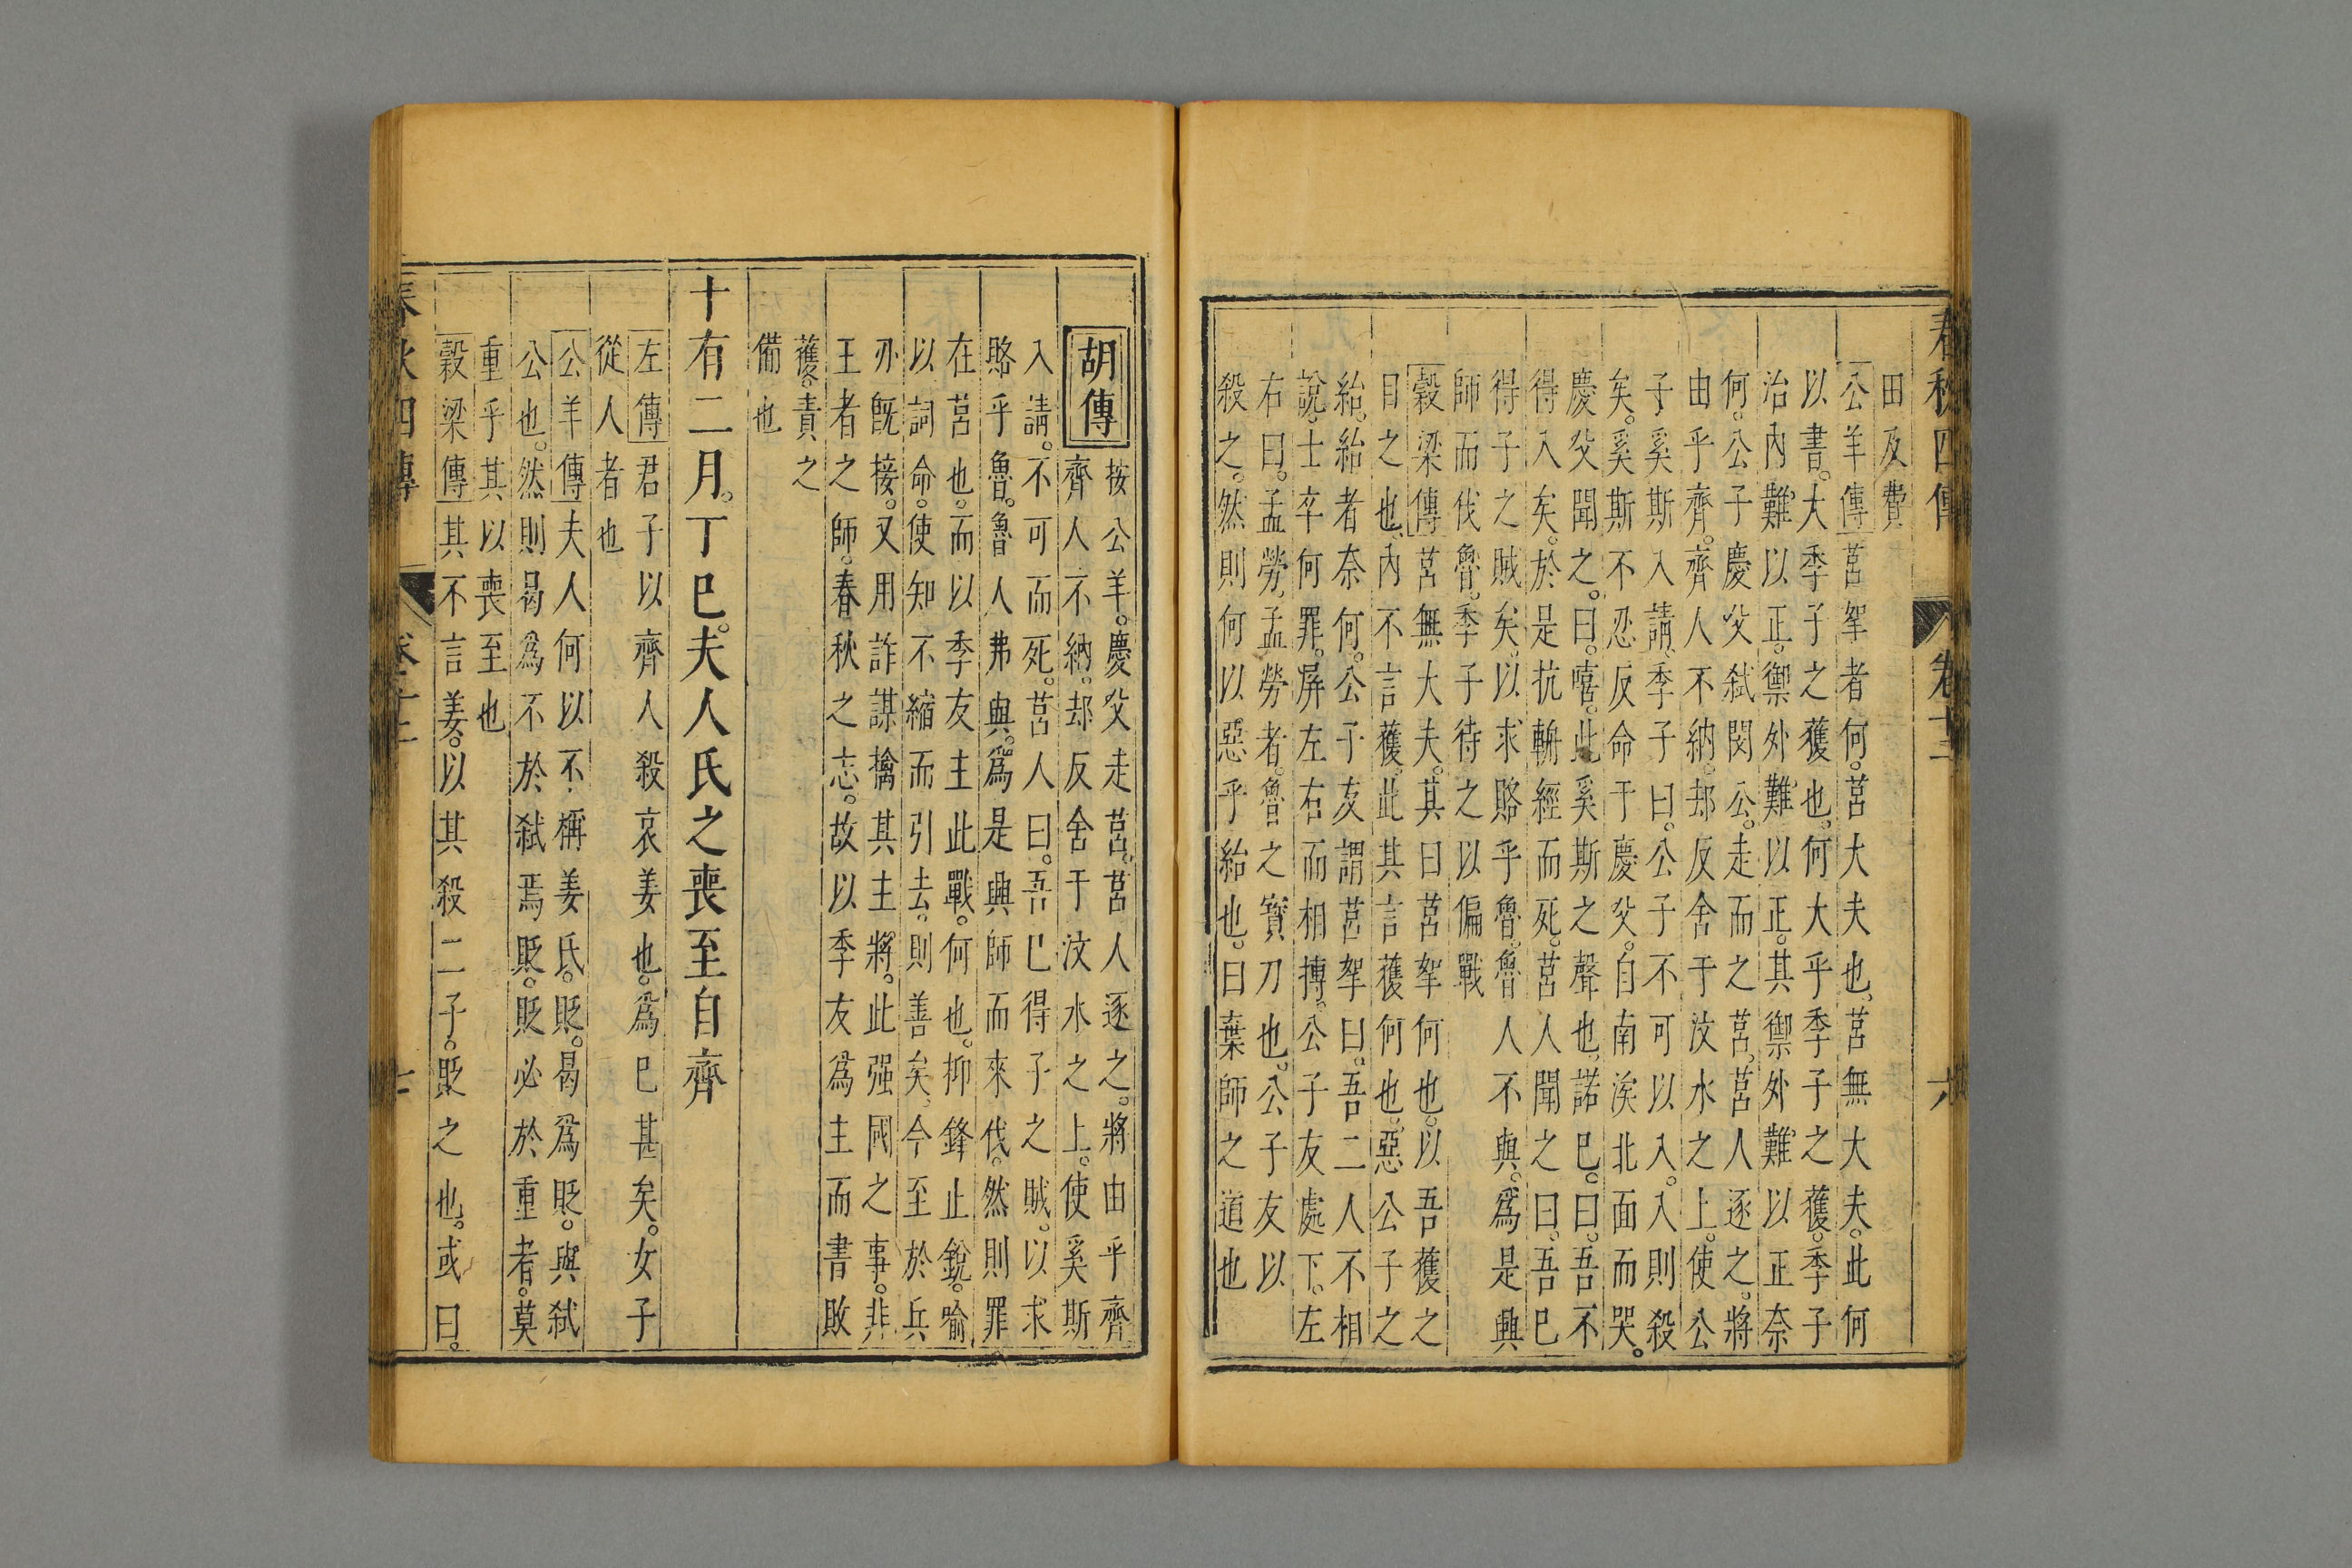 春秋四傳 卷十二 六
田及費
公羊傳莒挐者何。莒大夫也。莒無大夫。此何
以書。大季子之獲也。何大乎季子之獲。季子
治內難以正。禦外難以正。其禦外難以正奈
何。公子慶父弑閔公。走而之莒。莒人逐之。將
由乎齊。齊人不納。却反舍于汶水之上。使公
子奚斯入請。季子曰。公子不可以入。入則殺
矣。奚斯不忍反命于慶父。自南涘北面而哭。
慶父聞之。曰。嘻。此奚斯之聲也。諾巳。曰。吾不
得入矣。於是抗輈經而死。莒人聞之曰。吾巳
得子之賊矣。以求賂乎魯。魯人不與。爲是興
師而伐魯。季子待之以偏戰
穀梁傳莒無大夫。其曰莒挐何也。以吾獲之
目之也。內不言獲。此其言獲何也。惡公子之
紿。紿者奈何。公子友謂莒挐曰。吾二人不相
說。士卒何罪。屏左右而相搏。公子友處下。左
右曰。孟勞。孟勞者。魯之寶刀也。公子友以
殺之。然則何以惡乎紿也。曰棄師之道也
胡傳按公羊。慶父走莒。莒人逐之。將由乎齊。
齊人不納。却反舍于汶水之上。使奚斯
入請。不可而死。莒人曰。吾巳得子之賊。以求
賂乎魯。魯人弗與。爲是興師而來伐。然則罪
在莒也。而以季友主此戰。何也。抑鋒止銳。喻
以詞命。使知不縮而引去。則善矣。今至於兵
刃既接。又用詐謀擒其主將。此强國之事。非
王者之師。春秋之志。故以季友爲主而書敗
獲。責之
備也
十有二月。丁巳。夫人氏之喪至自齊
左傳君子以齊人殺哀姜也。爲巳甚矣。女子
從人者也
公羊傳夫人何以不稱姜氏。貶。曷爲貶。與弑
公也。然則曷爲不於弑焉貶。貶必於重者。莫
重乎其以喪至也
穀梁傳其不言姜。以其殺二子。貶之也。或曰。
春秋四傳 卷十二 七